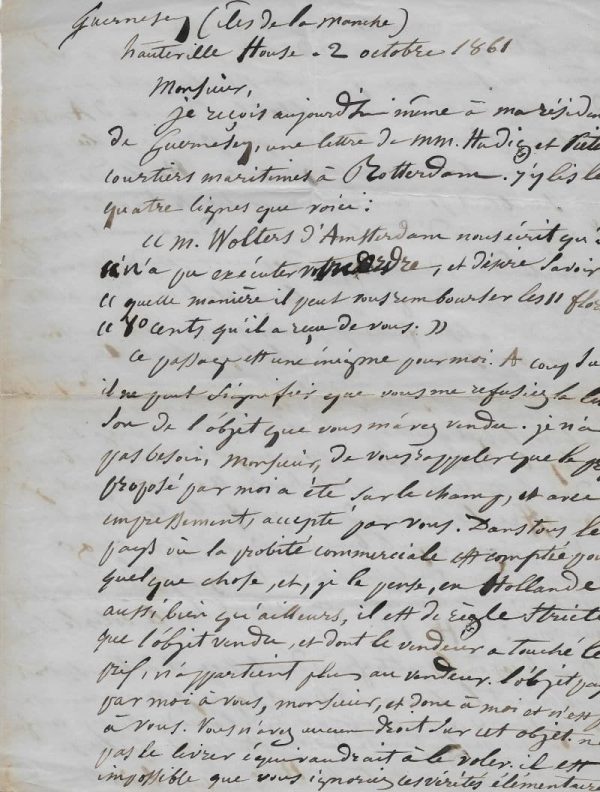 Guernesey (îles de la Manche)
hauteville House - 2 octobre 1861
Monsieur,
je reçois aujourd'hui même à ma résiden
de Guernesey, une lettre de MM. Hudig et Piete
courtiers maritimes à Rotterdam. j'y lis le
quatre lignes que voici :
« M. Wolters d'Amsterdam nous écrit qu'
« n'a pu exécuter votre ordre, et désire savoir
« quelle manière il peut vous rembourser les 11 flor
« 70 cents qu'il a reçu de vous. »
ce passage est une énigme pour moi. A coup su
il ne peut signifier que vous me refusiez la
son de l'objet que vous m'avez vendu. je n'a
pas besoin, Monsieur, de vous rappeler que le p
proposé par moi a été sur le champ, et avec
empressement, accepté par vous. Dans tous le
pays où la probité commerciale est comptée pou
quelque chose, et, je le pense, en Hollande
aussi bien qu'ailleurs, il est de règle stricte
que l'objet vendu, et dont le vendeur a touché le
prix, n'appartient plus au vendeur. l'objet pay
par moi à vous, monsieur, est donc à moi et n'est p
à vous. Vous n'avez aucun droit sur cet objet. ne
pas le livrer équivaudrait à le voler. il est
impossible que vous ignoriez ces vérités élémentaire